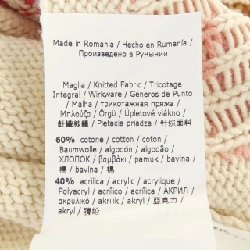 Made in Romania / Hecho en Rumanía /
Произведено в Румынии
Maglia / Knitted Fabric / Tricotage
Integral / Wirkware / Generos de Punto
/ Malha / трикотажная пряжа /
Μπλούζα / Örgü / Úpletové vlákno /
針織纖維 / Pletacia priadza / 针织面料
60% cotone / cotton / coton /
Baumwolle / algodón / algodão /
ХЛОПОК / βαμβάκι / pamuk / bavlna /
棉 / bavlna / 棉
40% acrilica / acrylic / acrylique /
Polyacryl / acrílico / acrílico / АКРИЛ /
ακρυλικό / akrilik / akryl / 亞克力 /
akryl / 腈纶